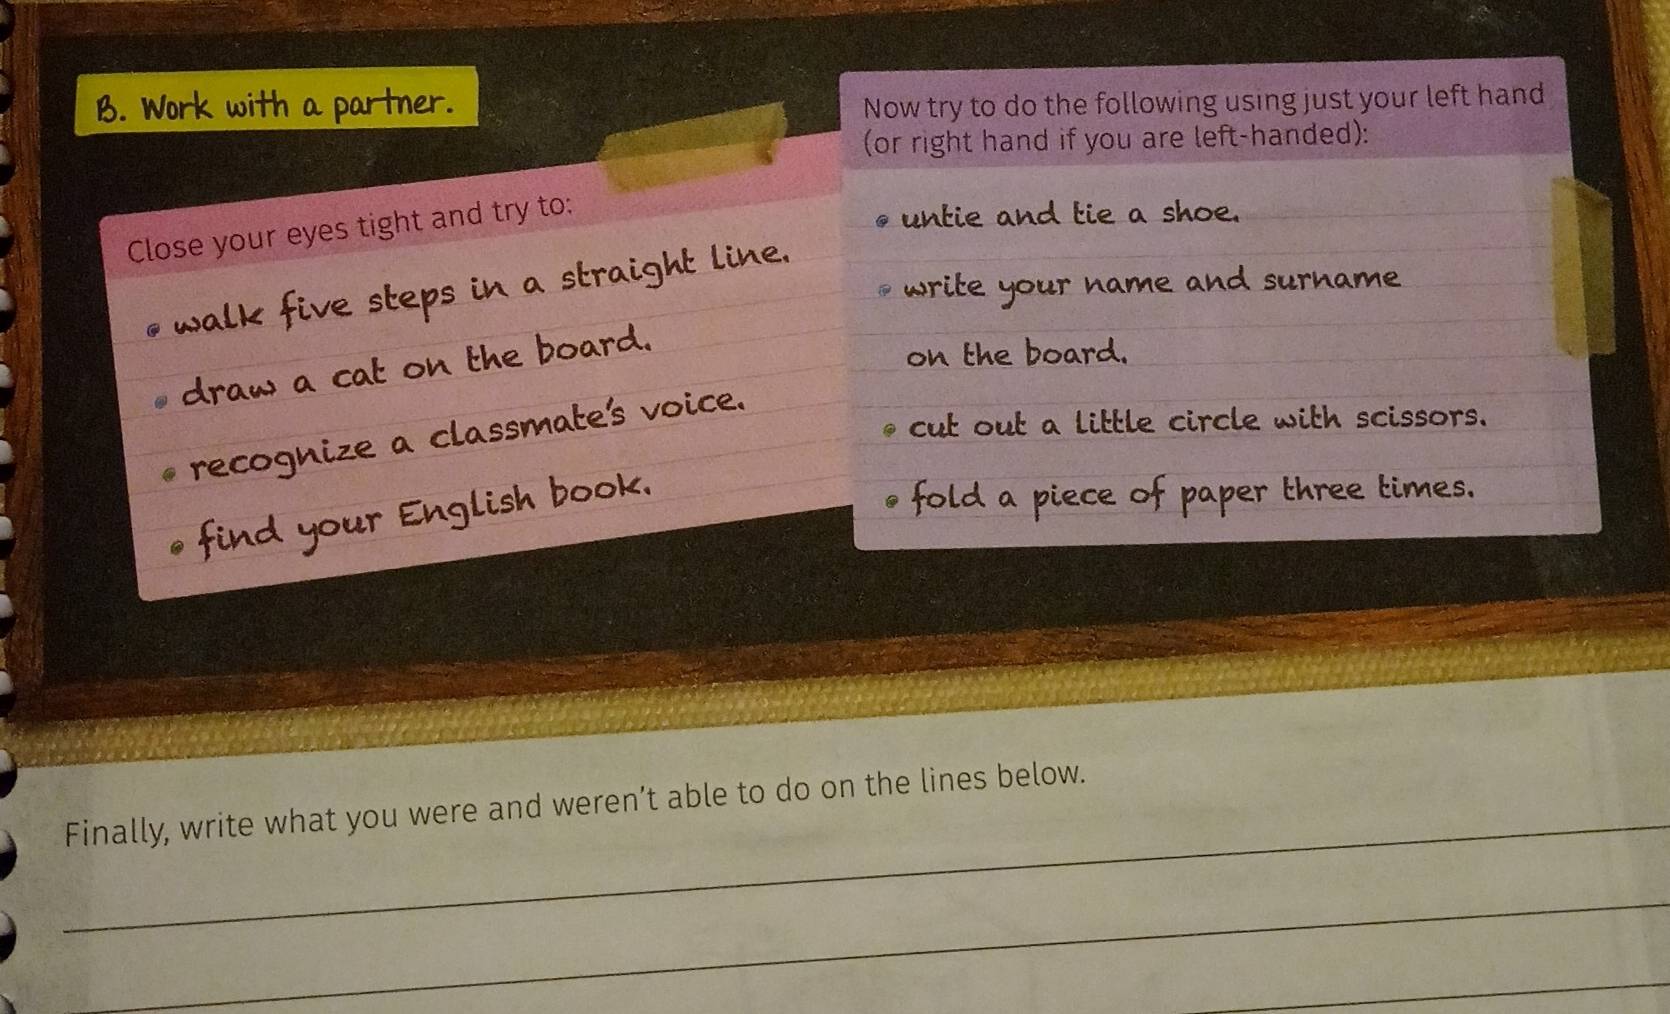 B. Work with a partner.
Close your eyes tight and try to:
walk five steps in a straight line.
draw a cat on the board.
recognize a classmate's voice.
find your English book.
Now try to do the following using just your left hand
(or right hand if you are left-handed):
untie and tie a shoe.
write your name and surname
on the board.
cut out a little circle with scissors.
fold a piece of paper three times.
Finally, write what you were and weren't able to do on the lines below.